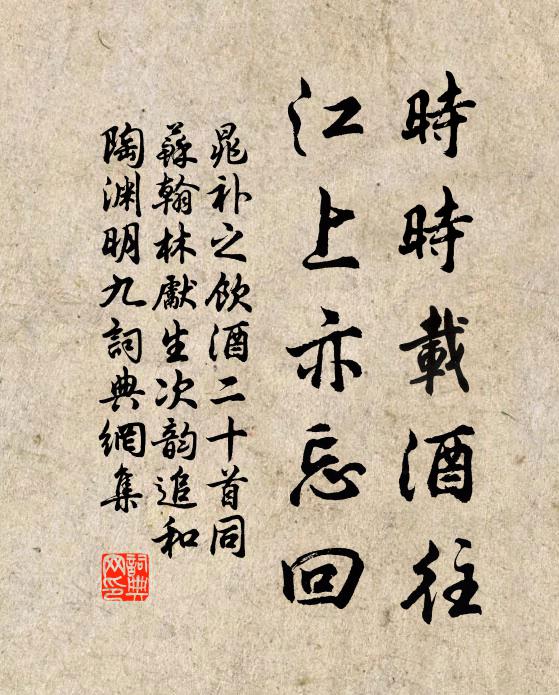 時時載酒往
江上亦忘回
晁补之飲酒二十首同
蘇翰林獻生次韵追和
陶渊明九詞典網集
詞典
网印